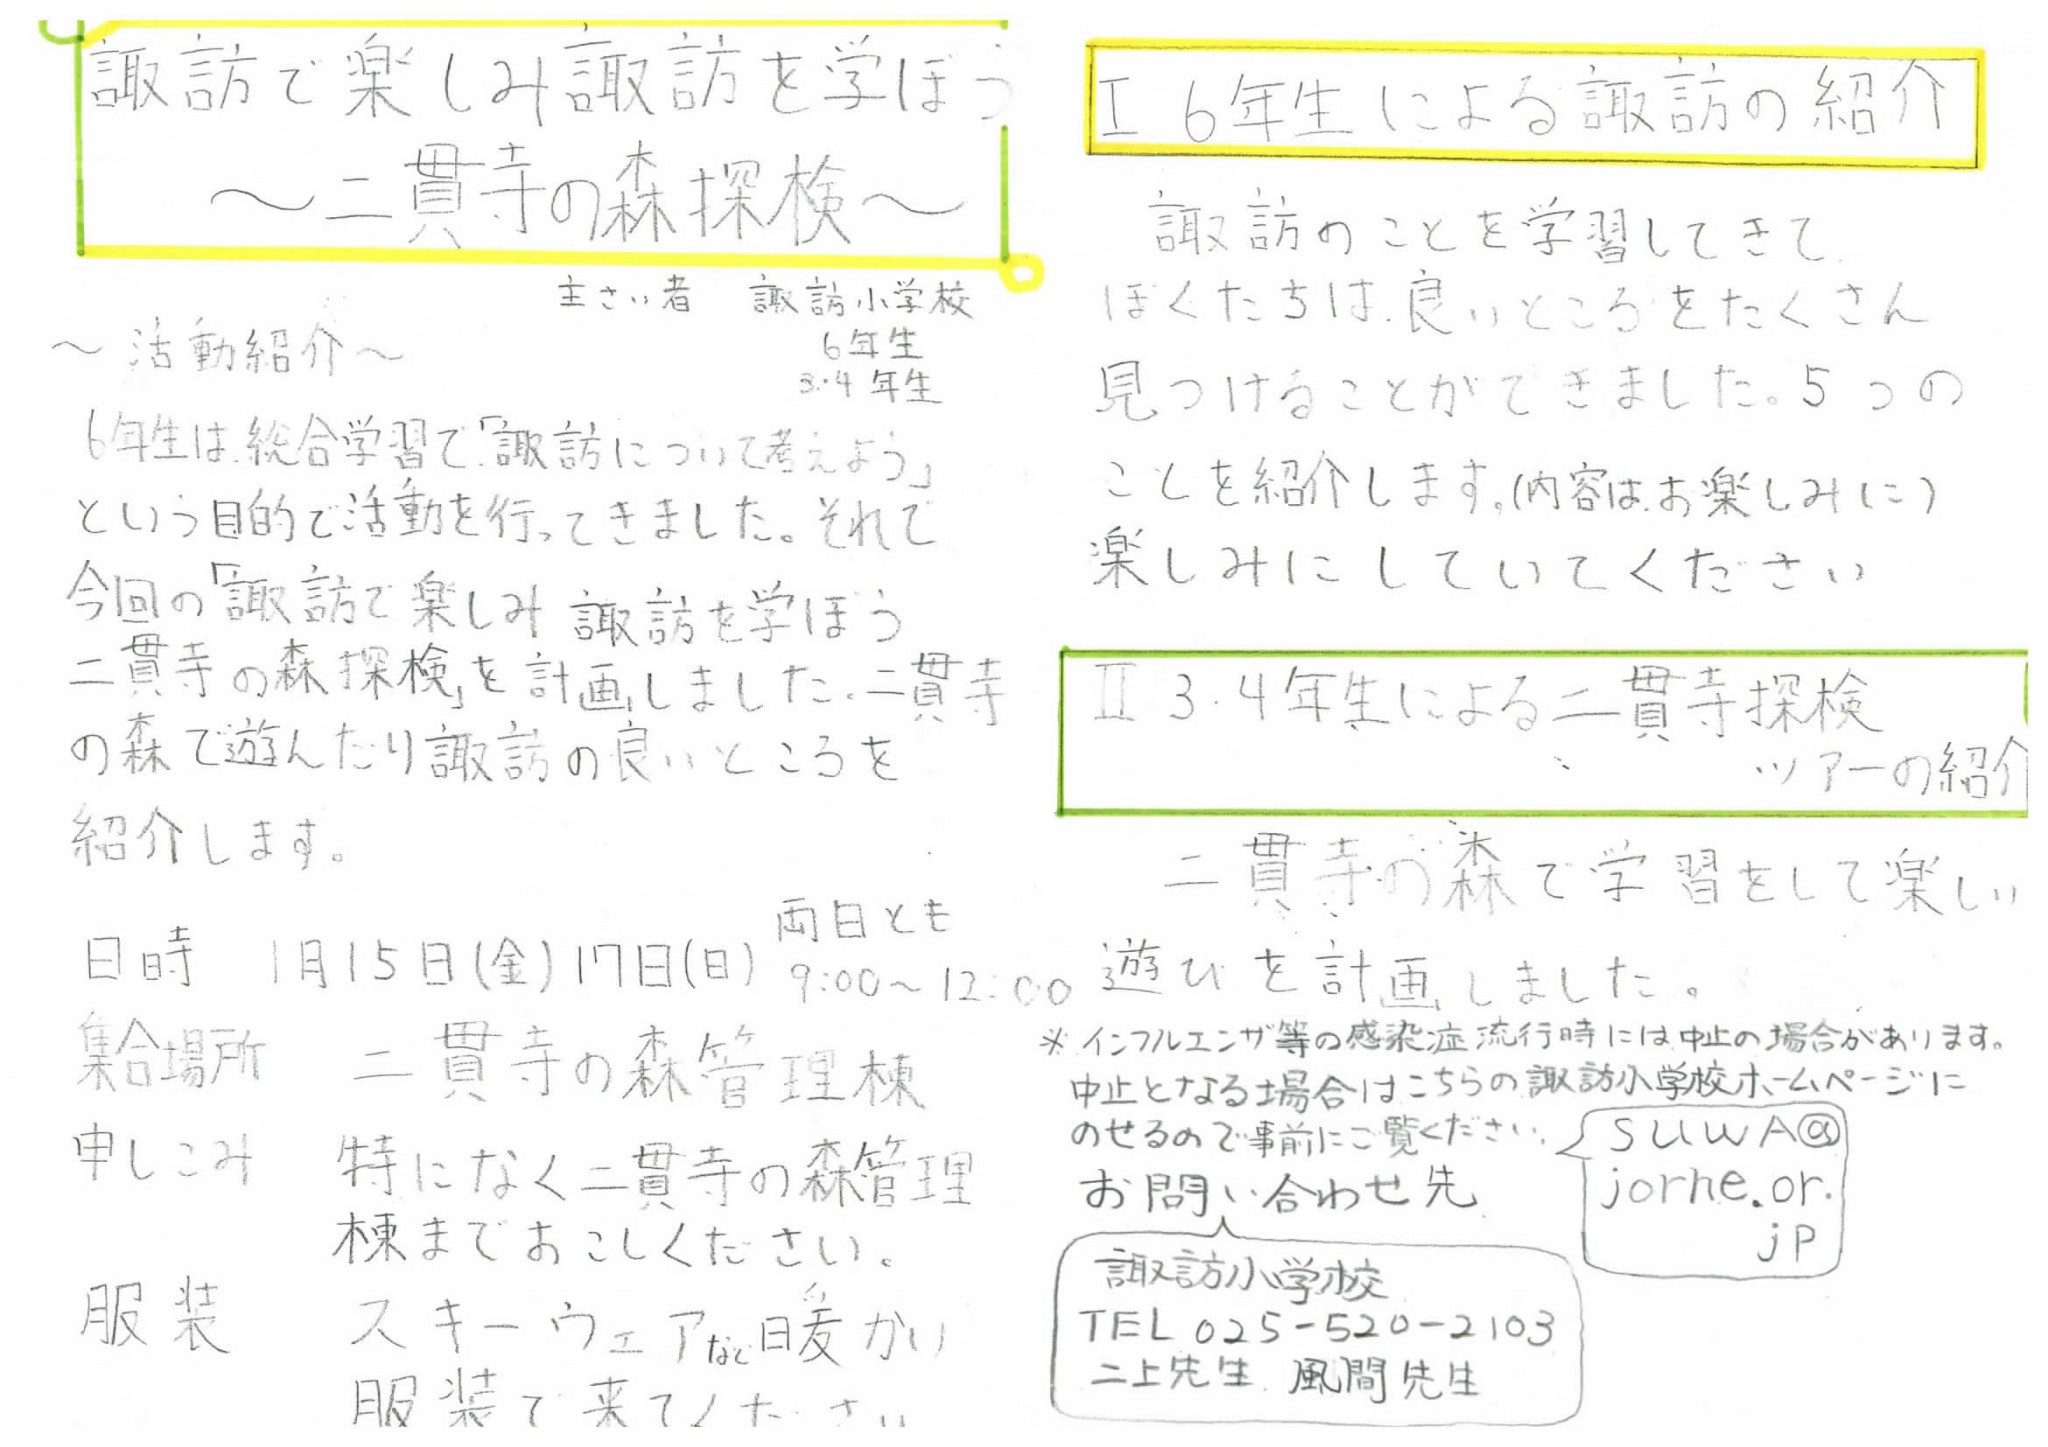 諏訪で楽しみ諏訪を学ぼう
～二貫寺の森探検～
主さい者 諏訪小学校
6年生
3・4年生
～活動紹介～
6年生は、総合学習で、「諏訪について考えよう」
という目的で活動を行ってきました。それで
今回の「諏訪で楽しみ 諏訪を学ぼう
二貫寺の森探検」を計画しました。二貫寺
の森で遊んだり諏訪の良いところを
紹介します。
日時 1月15日(金)17日(日) 両日とも
9:00～12:00
集合場所 二貫寺の森管理棟
申しこみ 特になく二貫寺の森管理
棟までおこしください。
服装 スキーウェアなど暖かい
服装で来てください
I 6年生による諏訪の紹介
諏訪のことを学習してきて
ぼくたちは、良いところをたくさん
見つけることができました。5つの
ことを紹介します。(内容は、お楽しみに)
楽しみにしていてください
II 3・4年生による二貫寺探検
ツアーの紹介
二貫寺の森で学習をして楽しい
遊びを計画しました。
※インフルエンザ等の感染症流行時には中止の場合があります。
中止となる場合はこちらの諏訪小学校ホームページに
のせるので事前にご覧ください。
SUWA@
jorne.or.
jp
お問い合わせ先
諏訪小学校
TEL 025-520-2103
二上先生 風間先生